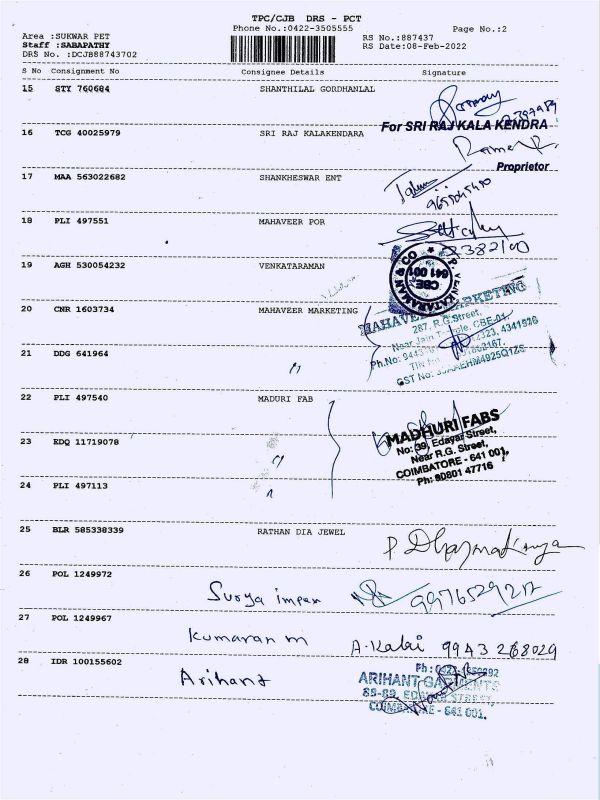 TPC/CJB DRS - PCT
Phone No.:0422-3505555
Page No.:2
Area :SUKWAR PET
RS No.:887437
Staff :SABAPATHY
RS Date:08-Feb-2022
DRS No. :DCJB88743702
S No Consignment No Consignee Details Signature
15 STY 760684 SHANTHILAL GORDHANLAL
16 TCG 40025979 SRI RAJ KALAKENDARA
For SRI RAJ KALA KENDRA
Proprietor
17 MAA 563022682 SHANKHESWAR ENT
18 PLI 497551 MAHAVEER POR
19 AGH 530054232 VENKATARAMAN
P. VENKATARAMAN & CO
CBE
641 001
20 CNR 1603734 MAHAVEER MARKETING
MAHAVEER MARKETING
287, R.G.Street,
Near Jain Temple, CBE-01.
21 DDG 641964
22 PLI 497540 MADURI FAB
MADHURI FABS
No: 39, Edayar Street,
Near R.G. Street,
COIMBATORE - 641 001.
Ph: 80801 47716
23 EDQ 11719078
24 PLI 497113
25 BLR 585338339 RATHAN DIA JEWEL
26 POL 1249972
Surya impex 9976529217
27 POL 1249967
Kumaran m A. Kalai 9943 268029
28 IDR 100155602
Arihant
ARIHANT GARMENTS
COIMBATORE - 641 001.